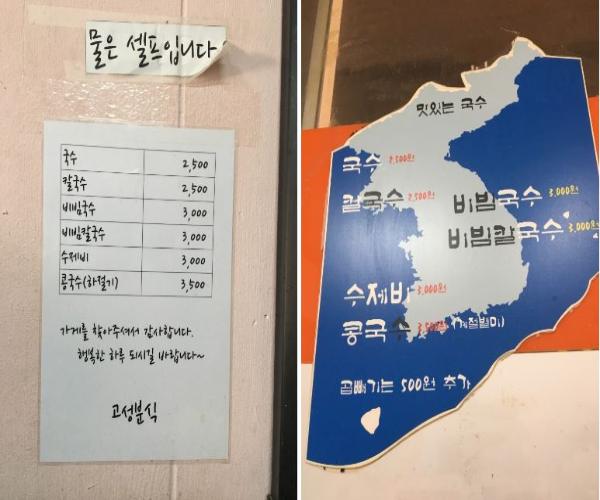 물은 셀프입니다
국수 2,500
칼국수 2,500
비빔국수 3,000
비빔칼국수 3,000
수제비 3,000
콩국수(하절기) 3,500
가게를 찾아주셔서 감사합니다.
행복한 하루 되시길 바랍니다~
고성분식
맛있는 국수
국수 2,500원
칼국수 2,500원
비빔국수 3,000원
비빔칼국수 3,000원
수제비 3,000원
콩국수 3,500원 (계절별미)
곱빼기는 500원 추가